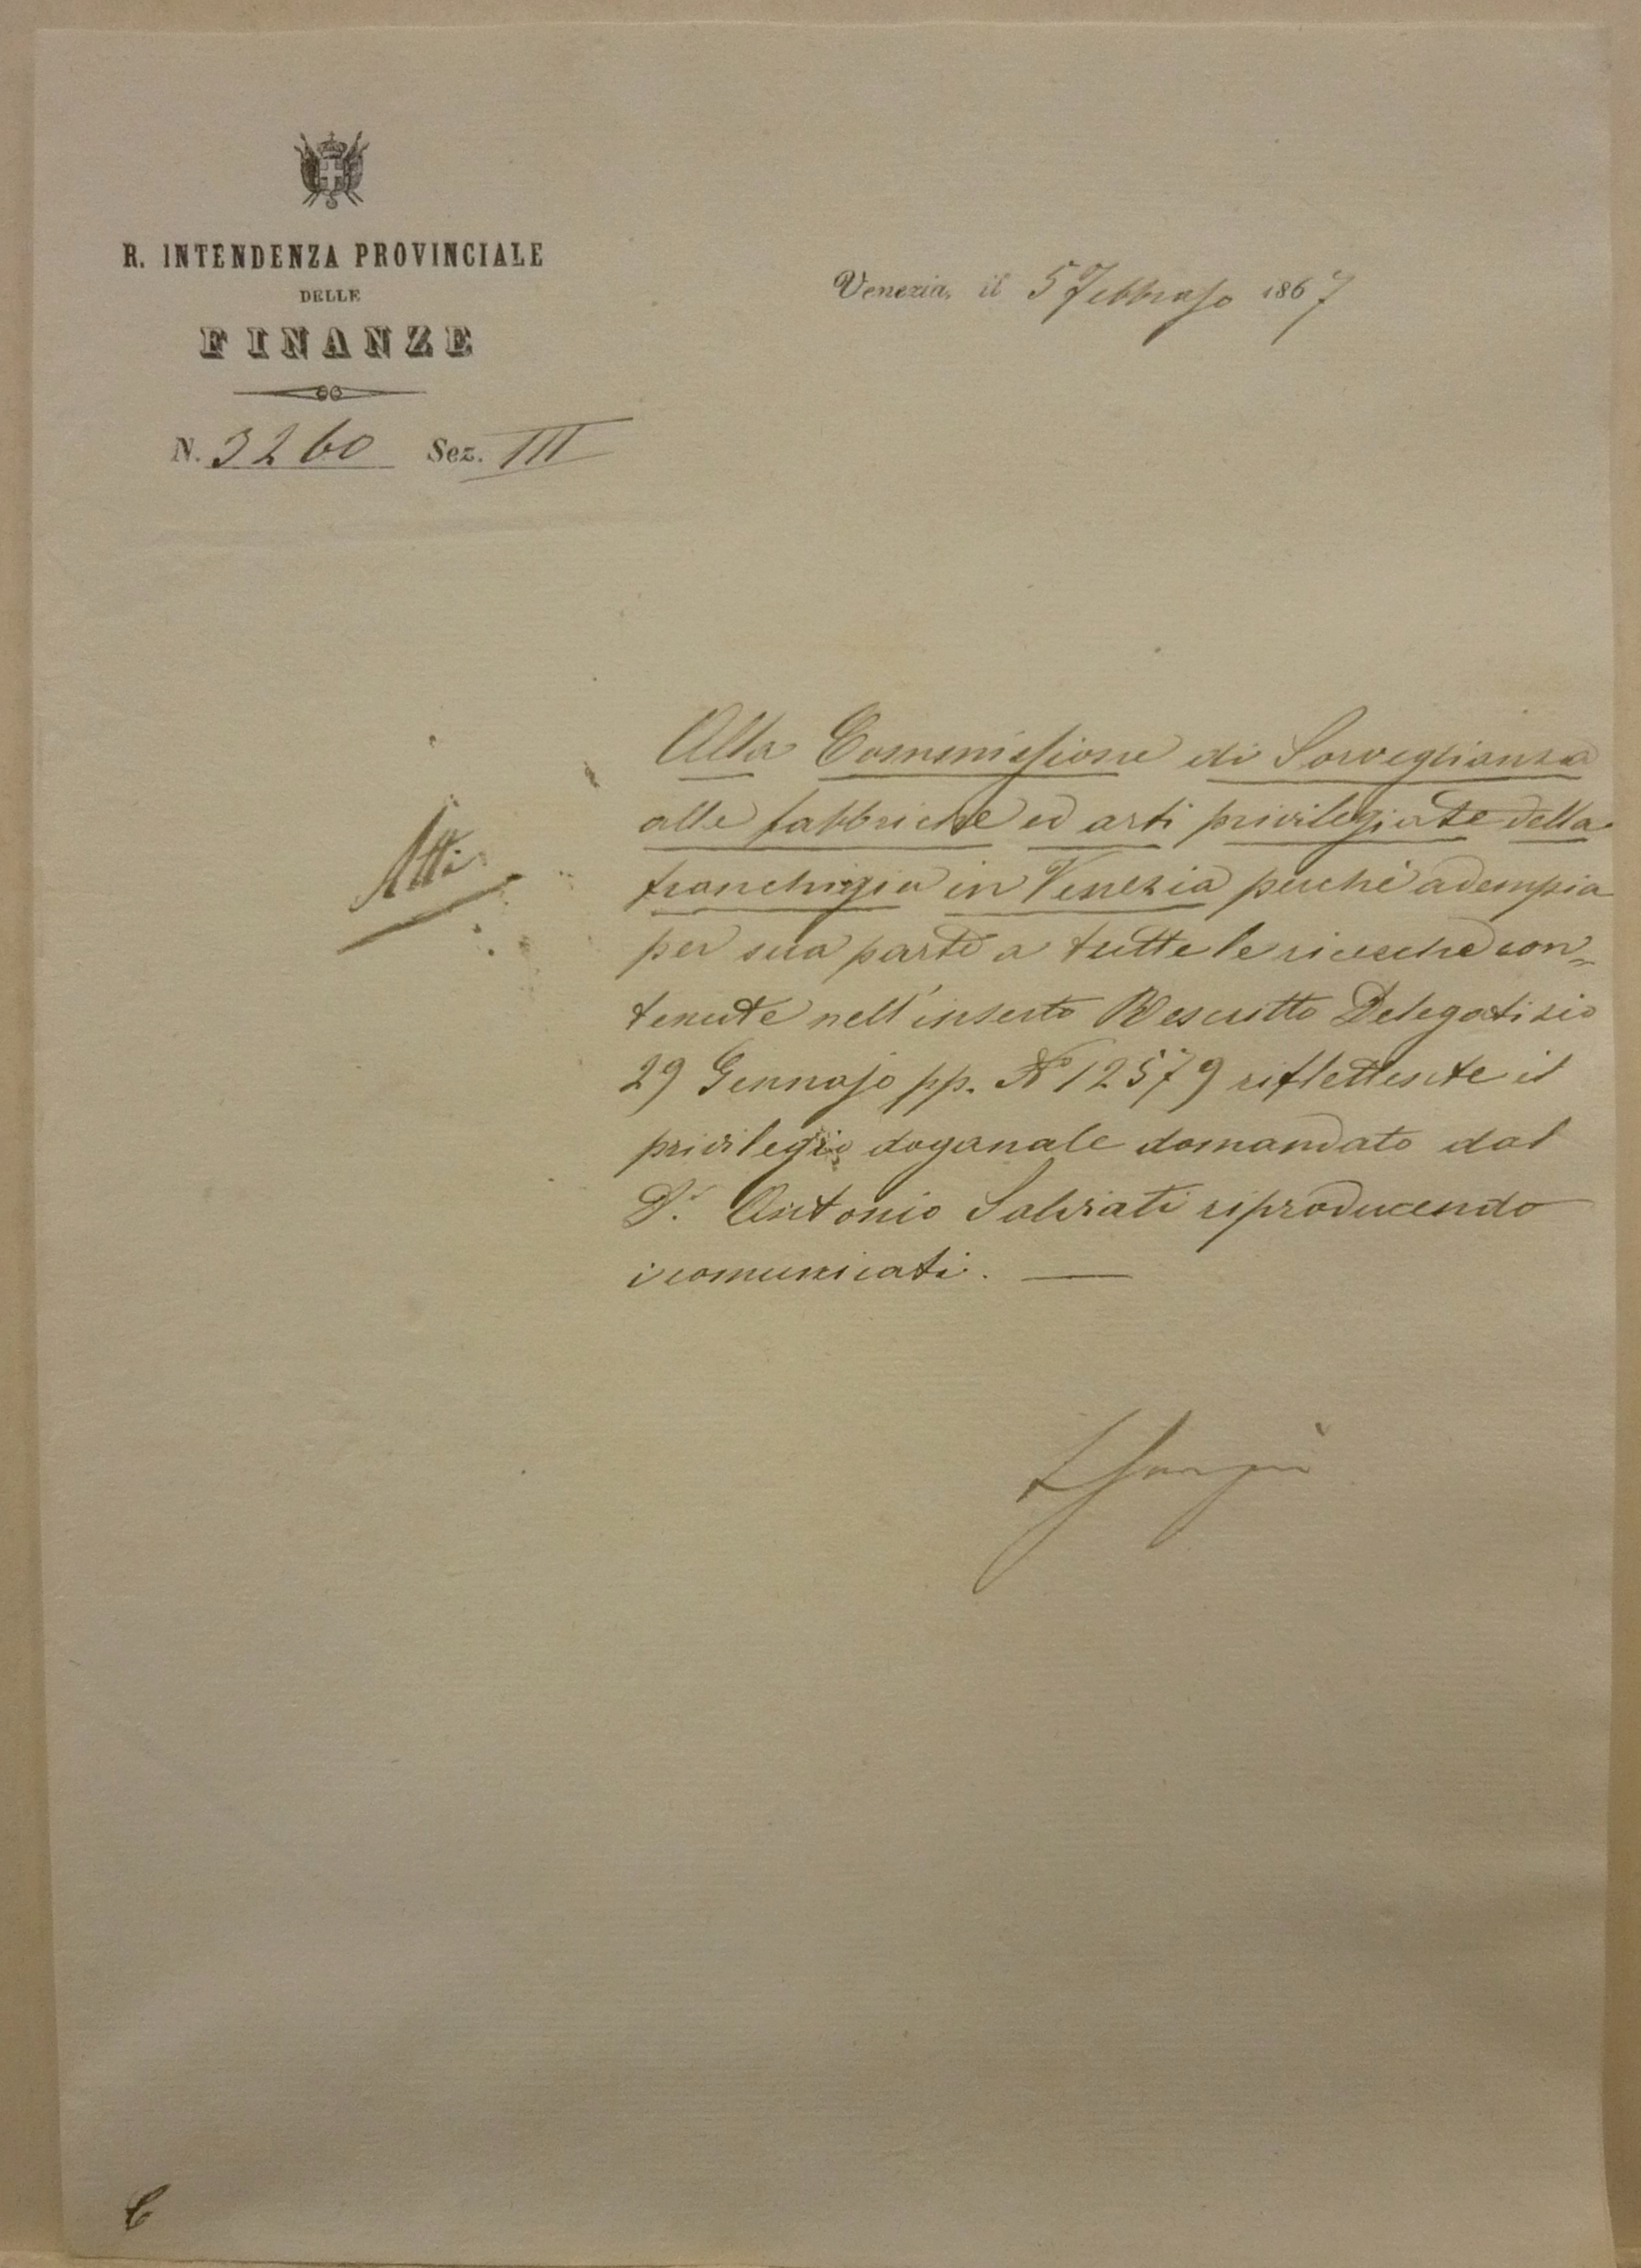 R. INTENDENZA PROVINCIALE
DELLE
FINANZE
N. 3260 Sez. III
Venezia, il 5 Febbrajo 1867
Atti
Alla Commissione di Sorveglianza
alle fabbriche ed arti privilegiate della
franchigia in Venezia perchè adempia
per sua parte a tutte le ricerche con=
tenute nell'inserto Rescritto Delegatizio
29 Gennajo pp. N 12579 riflettente il
privilegio doganale domandato dal
Dr. Antonio Salviati riproducendo
i comunicati.